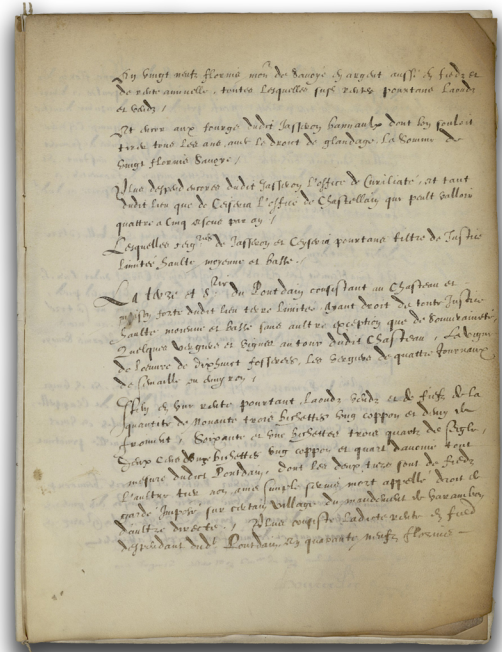 En vingt neufz florins mon. de Savoye d'argent aussi de fiedz et
de rente annuelle, toutes lesquelles susd. rentes pourtans laoudz
et vendz /
Et oultre aux fourgs dudit Jasseron bannaulx dont lon souloit
tirer tous les ans, avec le droit de glandage, la somme de
vingt florins Savoye /
Plus despend encores dudit Jasseron l'office de Curiliaté, et tant
dudit lieu que de Ceyseria l'office de Chastellain qui peult valloir
quattre a cinq escus par an /
Lesquelles seig.ries de Jasseron et Ceyseria pourtans tiltre de Justice
limites haulte moyenne et basse.
La terre et S.rie du Pontdain consistant au Chasteau et
maison forte dudit lieu terre limitée, ayant droit de toute Justice
haulte moyenne et basse sans aultre exception que de Souveraineté
Quelques vergiers et vignes au tour dudit Chasteau, La vigne
de l'oeuvre de dixhuict fosserées, les vergiers de quattre Journaux
de semaille ou environ /
Item de une rente pourtant laoudz vendz et de fiefz de la
quantité de nonante trois bichettes ung coppon et demy de
froment, Soixante et une bichettes trois quartz de seigle,
Deux cens deux bichettes ung coppon et quart d'avenne tout
mesure dudict Pontdain, dont les deux tiers sont de fiedz
L'aultre tier non, ains simple servis, mort appellé droit de
garde Imposé sur certain village du mandement de Varambon
d'aultre directe, / Plus consiste ladicte rente de fied
despendant dud. Pontdain en quarante neufz florins —